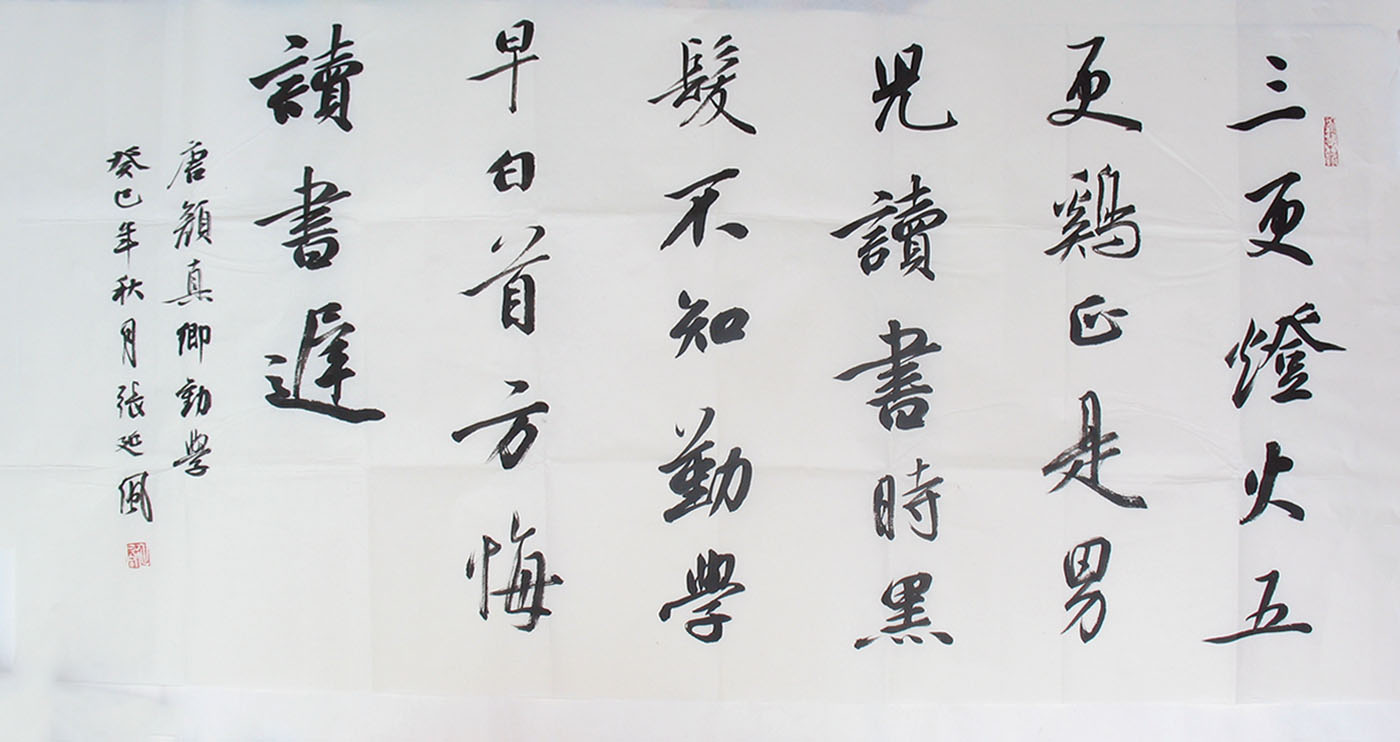 三更燈火五
更鷄正是男
兒讀書時黑
髮不知勤學
早白首方悔
讀書遲
唐顏真卿勸學
癸巳年秋月張延